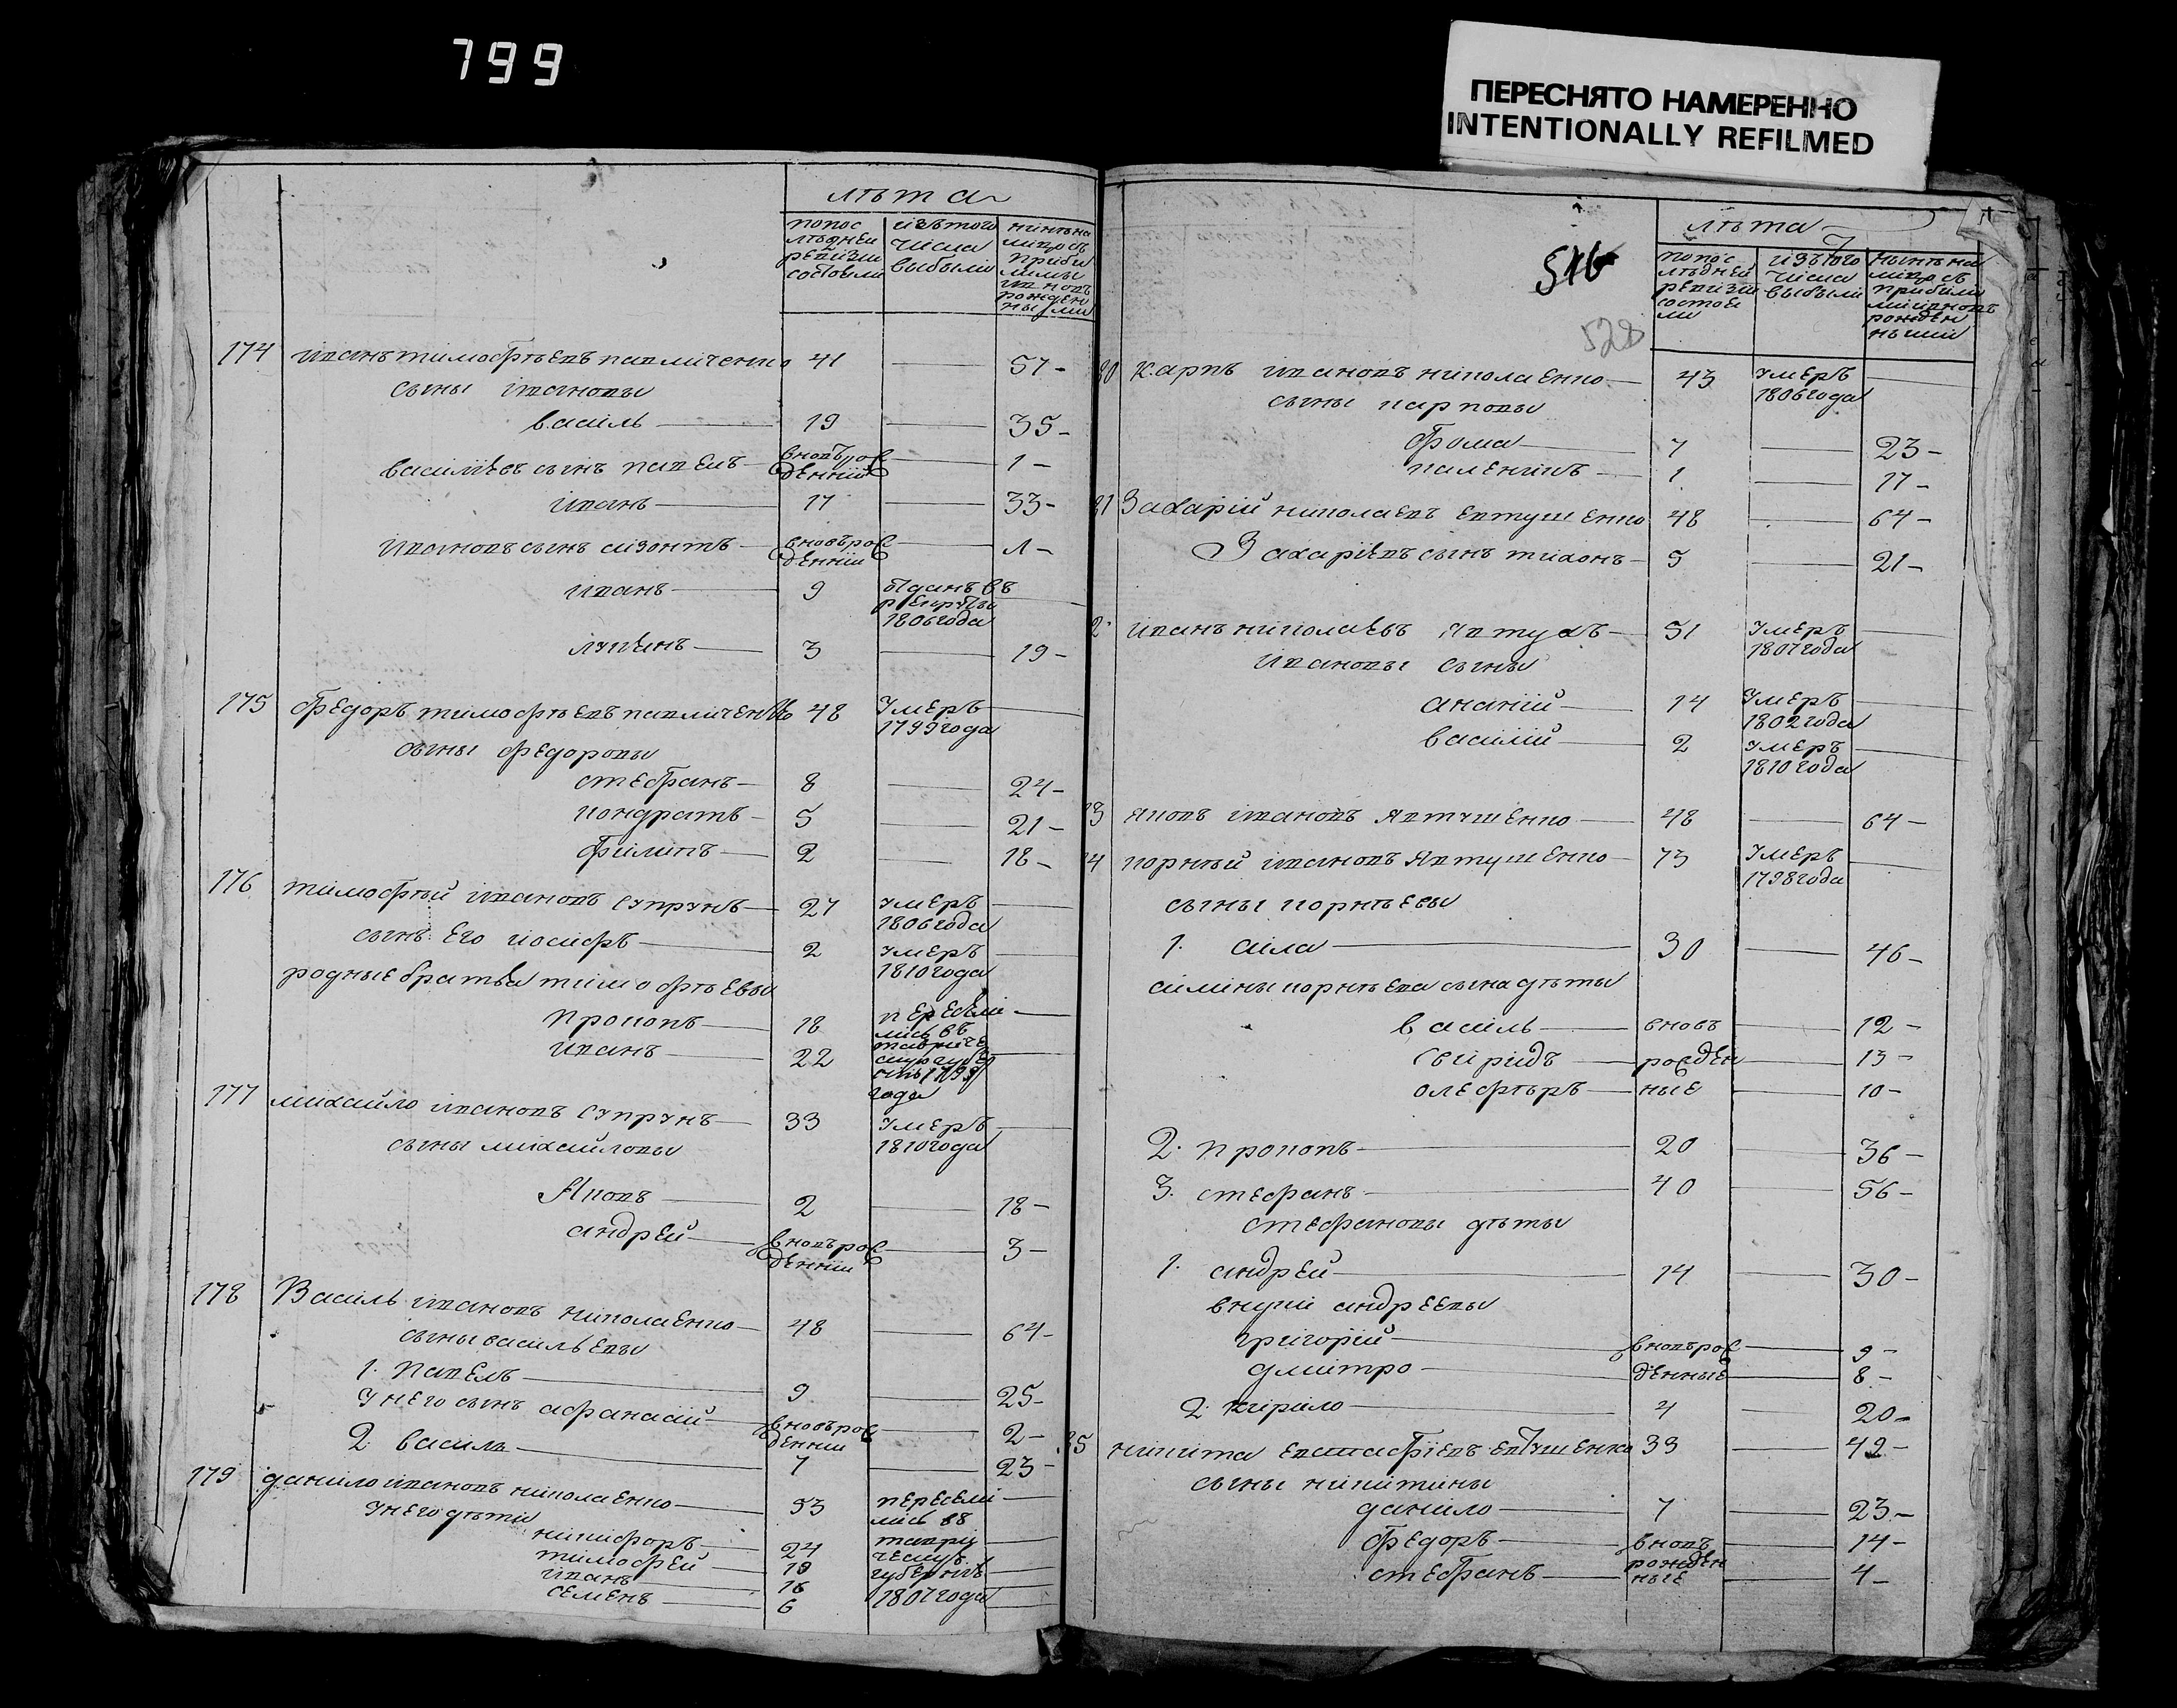 799
ПЕРЕСНЯТО НАМЕРЕННО
INTENTIONALLY REFILMED
лѣта
попос лѣдней ревизии состояли
изътого числа выбыли
нинѣ на лицо съ прибилимы ива новъ рожден ными
174 иванъ тимофѣевъ павличенко 41 — 57 -
сыны ивановы
василь — 19 — 35 -
васильевъ сынъ павелъ — вновърож денний — 1 -
иванъ — 17 — 33 -
ивановъ сынъ сизонтъ — вновърож денний — 1 -
иванъ — 9 отданъ въ рекруты 1806 года —
лукянъ — 3 — 19 -
175 федоръ тимофѣевъ павличенко 48 умеръ 1799 года —
сыны федоровы
стефанъ — 8 — 24 -
кондратъ — 5 — 21 -
филипъ — 2 — 18 -
176 тимофѣй ивановъ супрунъ — 27 умеръ 1806 года —
сынъ его иосифъ — 2 умеръ 1810 года —
родные братья тимофѣевы
прокопъ — 18 пересели —
иванъ — 22 лись въ тавриче скую губер 1799 года —
177 михайло ивановъ супрунъ — 33 умеръ 1810 года —
сыны михайловы
Яковъ — 2 — 18 -
андрей — вновърож денний — 3 -
178 Василь ивановъ николаенко — 48 — 64 -
сыны васильевы
1. павелъ — 9 — 25 -
у него сынъ афанасий — вновърож денний — 2 -
2. василь — 7 — 23 -
179 данило ивановъ николаенко — 53 пересели —
у него дѣти лись въ
никифоръ — 24 таври —
тимофей — 19 ческую —
иванъ — 16 губернию —
семенъ — 6 1807 года —
516
528
лѣта
попос лѣдней ревизии состоя ли
изътого числа выбыли
нынѣ на лицо съ прибили ми и вновъ рожден ными
80 карпъ ивановъ николаенко — 43 умеръ 1806 года —
сыны карповы
фома — 7 — 23 -
каленикъ — 1 — 17 -
81 Захарий николаевъ евтушенко 48 — 64 -
Захариевъ сынъ тихонъ — 5 — 21 -
2 иванъ николаевъ явтухъ — 51 умеръ 1807 года —
ивановы сыны
ананий — 14 умеръ 1802 года —
василий — 2 умеръ 1810 года —
3 яковъ ивановъ явтушенко — 48 — 64 -
4 корнѣй ивановъ явтушенко — 73 умеръ 1798 года —
сыны корнѣевы
1. сила — 30 — 46 -
силины корнѣева сына дѣты
василь — вновъ — 12 -
свиридъ — рожден — 13 -
олефѣръ — ные — 10 -
2. прокопъ — 20 — 36 -
3. стефанъ — 40 — 56 -
стефановы дѣты
1. андрей — 14 — 30 -
внуки андреевы
григорий — вновърож — 9 -
дмитро — денные — 8 -
2. кирило — 4 — 20 -
85 никита евстафiевъ евтушенко 33 — 49 -
сыны никитины
данило — 7 — 23 -
федоръ — вновъ — 14 -
стефанъ — рожден ные — 4 -